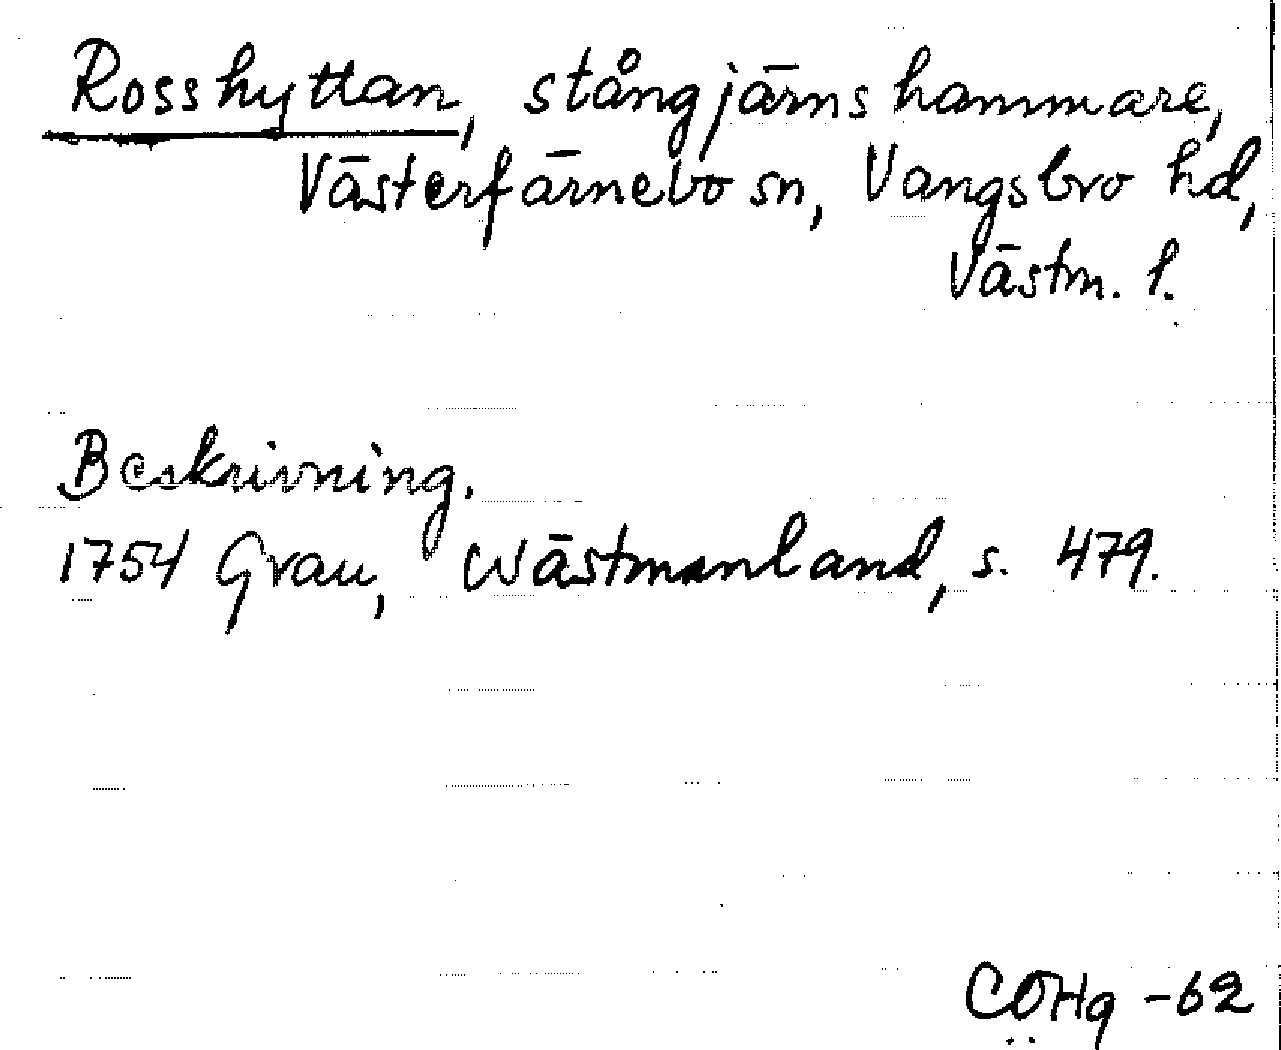 Rosshyttan, stångjärnshammare,
Västerfärnebo sn, Vangsbro hd,
Västm. l.
Beskrivning.
1754 Grau, Wästmanland, s. 479.
CÖHg -62